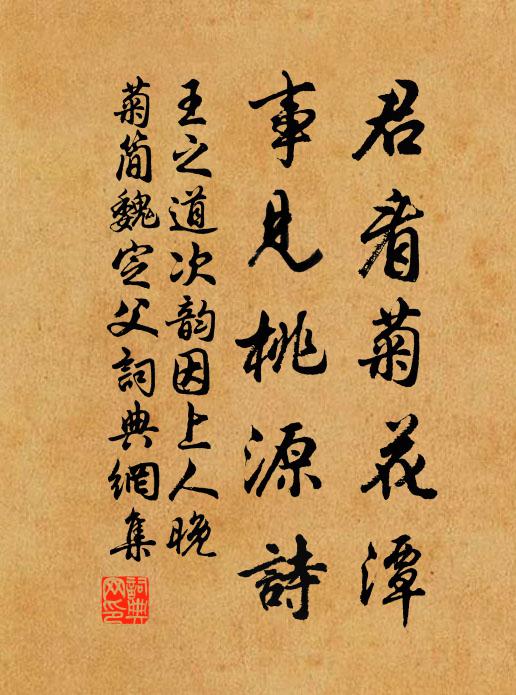 君看菊花潭
事見桃源詩
王之道次韵因上人晚
菊簡魏定父詞典網集
詞典
网印